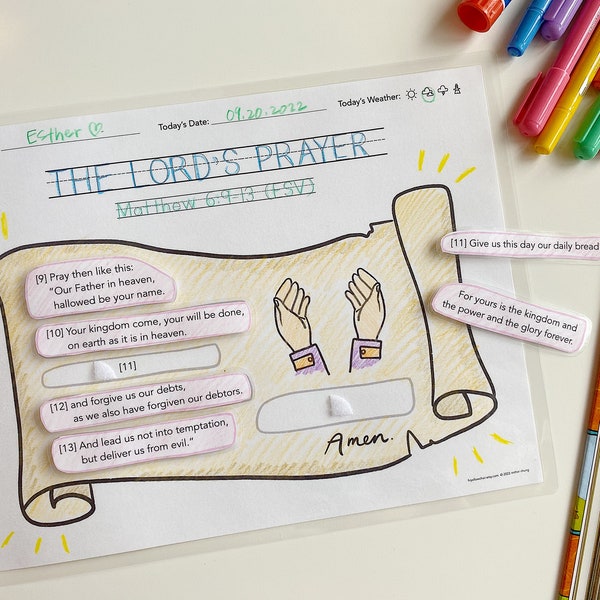 Esther ♡
Today's Date: 09.20.2022
Today's Weather:
THE LORD'S PRAYER
Matthew 6:9-13 (ESV)
[9] Pray then like this:
"Our Father in heaven,
hallowed be your name.
[10] Your kingdom come, your will be done,
on earth as it is in heaven.
[11]
[12] and forgive us our debts,
as we also have forgiven our debtors.
[13] And lead us not into temptation,
but deliver us from evil."
Amen.
[11] Give us this day our daily bread
For yours is the kingdom and
the power and the glory forever.